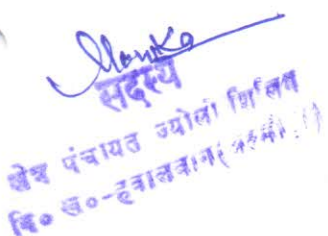 Monika
सदस्य
क्षेत्र पंचायत ज्योली
वि० ख०-हवालबाग